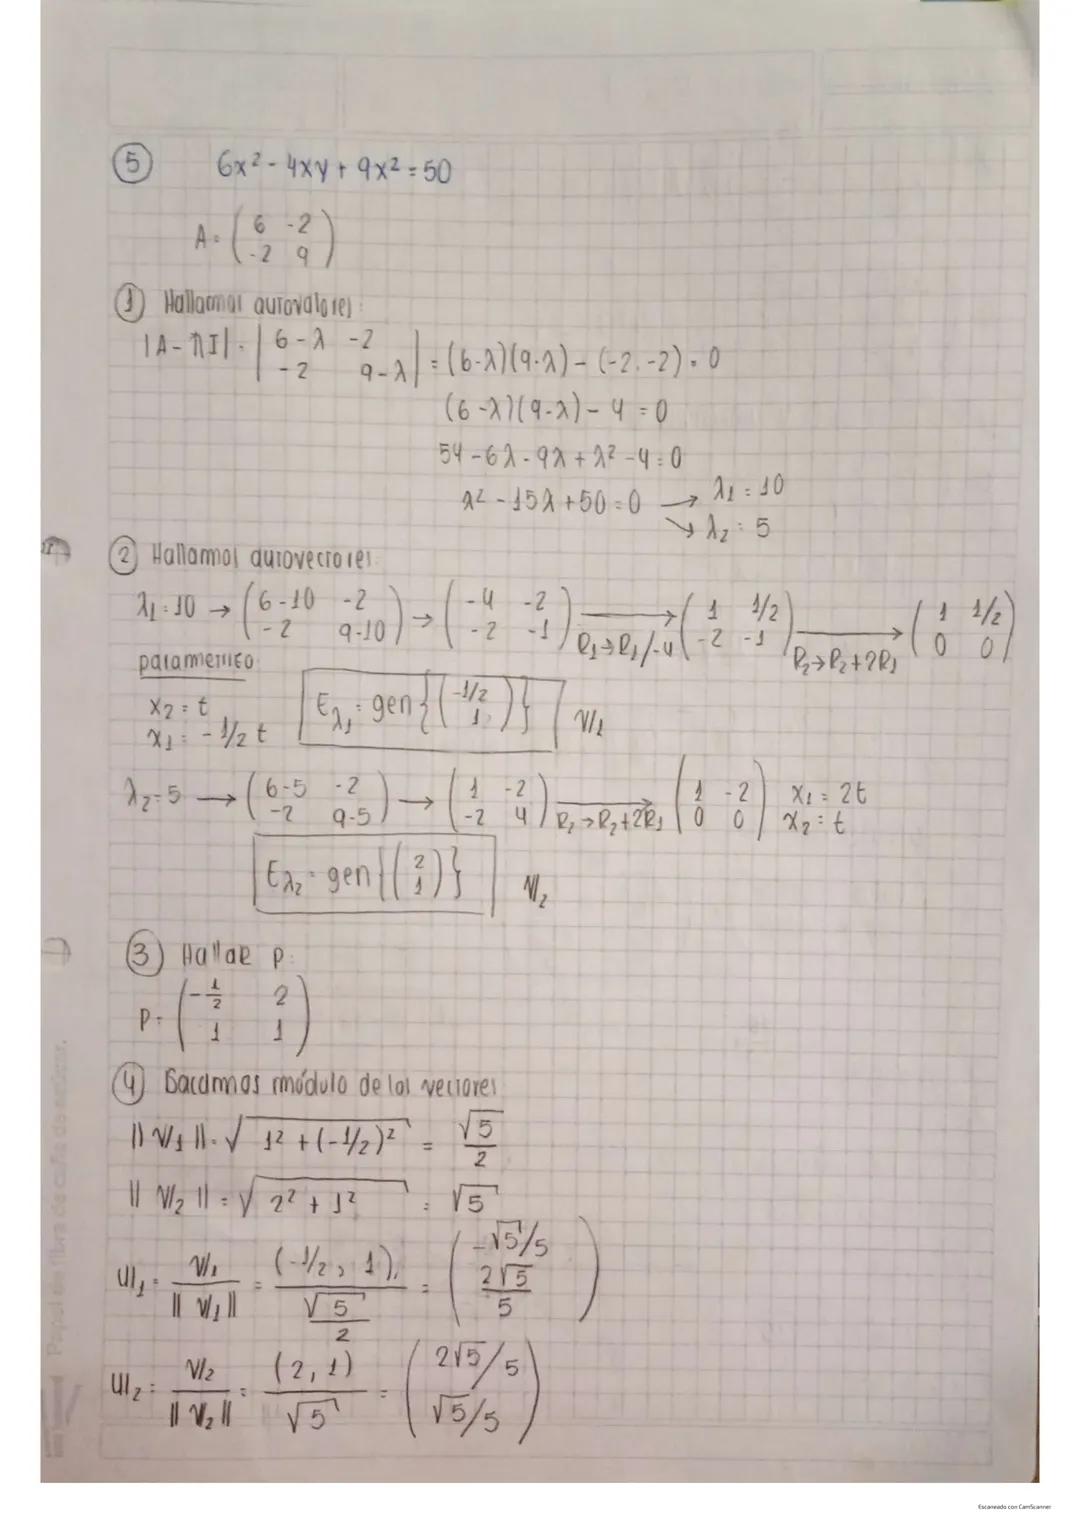 ⑤ 6x² - 4xy + 9x² = 50
A = ( 6 -2 )
( -2 9 )
① Hallamos autovalores:
|A - λI| = | 6-λ -2 | = (6-λ)(9-λ) - (-2.-2) = 0
| -2 9-λ |
(6-λ)(9-λ) - 4 = 0
54 - 6λ - 9λ + λ² - 4 = 0
λ² - 15λ + 50 = 0 → λ1 = 10
↘ λ2 = 5
② Hallamos autovectores:
λ1 = 10 → ( 6-10 -2 ) → ( -4 -2 ) → ( 1 1/2 ) → ( 1 1/2 )
( -2 9-10 ) ( -2 -1 ) R1→R1/-4 ( -2 -1 ) R2→R2+2R1 ( 0 0 )
parametrico:
x2 = t
x1 = -1/2 t
Eλ1 = gen {( -1/2 )}
( 1 ) V1
λ2 = 5 → ( 6-5 -2 ) → ( 1 -2 ) → ( 1 -2 ) x1 = 2t
( -2 9-5 ) ( -2 4 ) R2→R2+2R1 ( 0 0 ) x2 = t
Eλ2 = gen {( 2 )}
( 1 ) V2
③ Hallar P:
P = ( -1/2 2 )
( 1 1 )
④ Sacamos módulo de los vectores
|| V1 || = √1² + (-1/2)² = √5/2
|| V2 || = √2² + 1² = √5
U1 = V1/||V1|| = (-1/2, 1)/(√5/2) = ( -√5/5 )
( 2√5/5 )
U2 = V2/||V2|| = (2, 1)/√5 = ( 2√5/5 )
( √5/5 )
Papel de fibra de caña de azúcar.
Escaneado con CamScanner